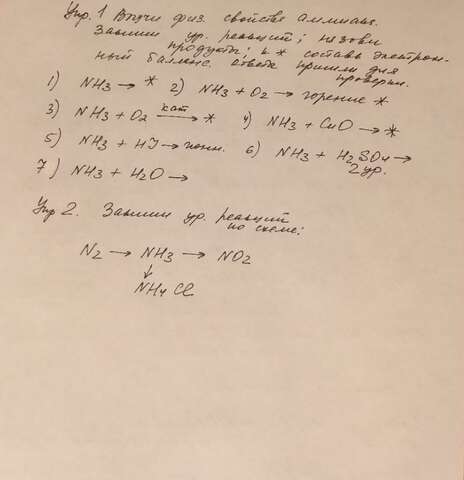 Упр. 1 Выучи физ. свойства аммиака.
Запиши ур. реакций; назови
продукты; к * составь электрон-
ный баланс. ответ пришли для
проверки.
1) NH3 → * 2) NH3 + O2 → горение *
3) NH3 + O2 кат → * 4) NH3 + CuO → *
5) NH3 + HJ → 6) NH3 + H2SO4 →
2 ур.
7) NH3 + H2O →
Упр 2. Запиши ур. реакций
по схеме:
N2 → NH3 → NO2
↓
NH4Cl